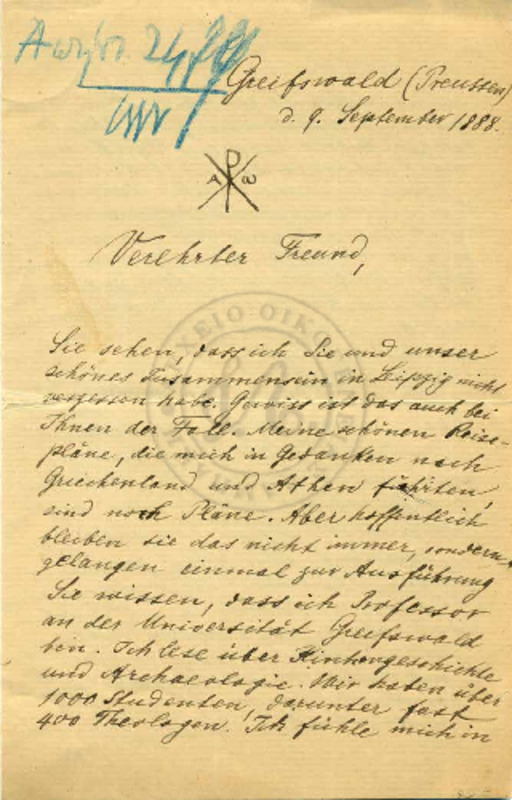 24/9/88
Greifswald (Preussen)
d. 9. September 1888.
A ω
Verehrter Freund,
Sie sehen, dass ich Sie und unser
schönes Zusammensein in Leipzig nicht
vergessen habe. Gewiss ist das auch bei
Ihnen der Fall. Meine schönen Reise-
pläne, die mich in Gedanken nach
Griechenland und Athen führten,
sind noch Pläne. Aber hoffentlich
bleiben sie das nicht immer, sondern
gelangen einmal zur Ausführung
Sie wissen, dass ich Professor
an der Universität Greifswald
bin. Ich lese über Kirchengeschichte
und Archaeologie. Wir haben über
1000 Studenten, darunter fast
400 Theologen. Ich fühle mich in
ΑΡΧΕΙΟ ΟΙΚΟ